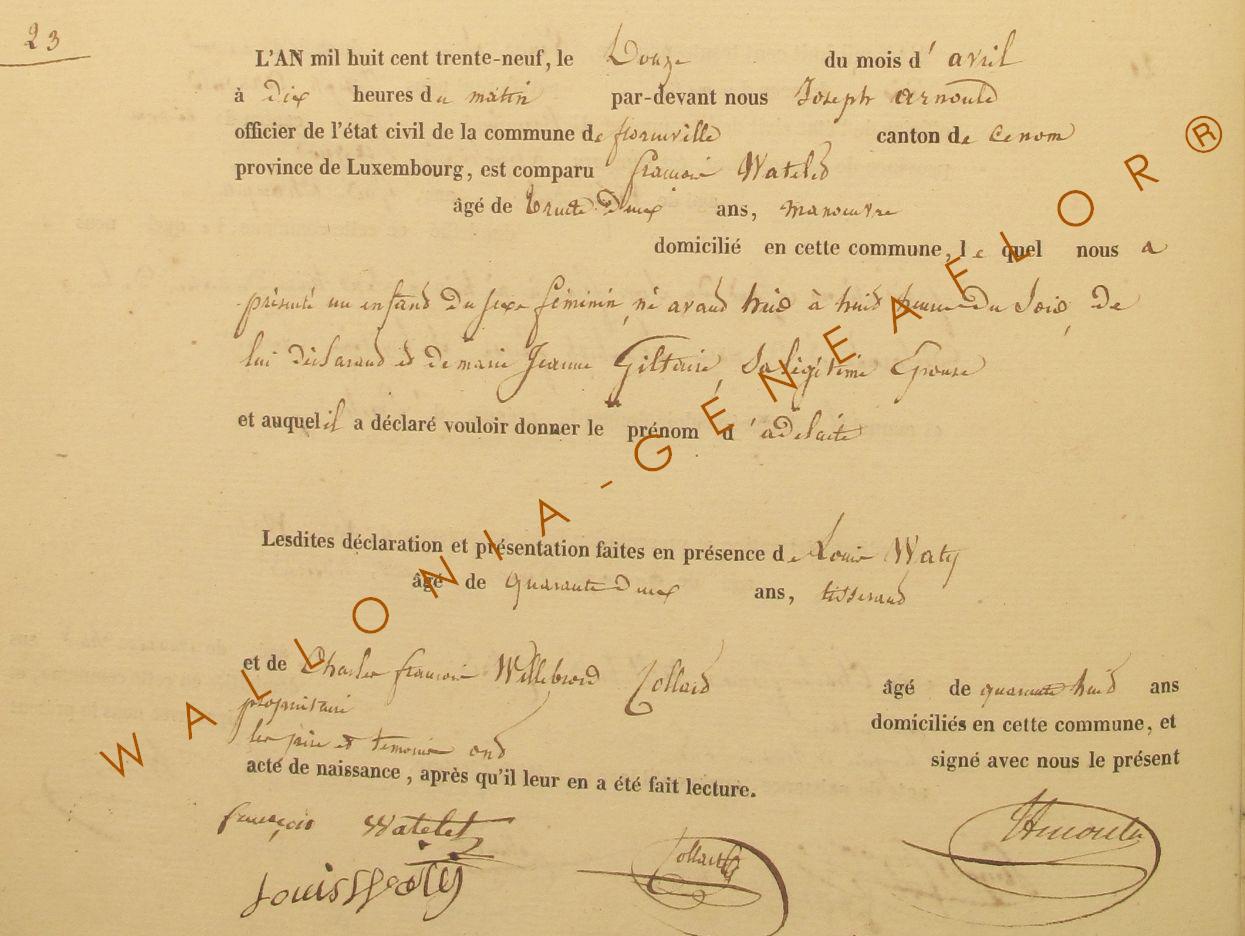 23
L'AN mil huit cent trente-neuf, le Douze du mois d'avril
à dix heures du matin par-devant nous Joseph arnould
officier de l'état civil de la commune de florenville canton de
province de Luxembourg, est comparu françois Watelet
âgé de trente Deux ans, manoeuvre
domicilié en cette commune, lequel nous a
présenté un enfand du sexe féminin, né avand hier à huid heures du Soir, de
lui déclarand et de marie Jeanne Giltaire, Sa légitime Epouse
et auquel il a déclaré vouloir donner le prénom d'adelaite
Lesdites déclaration et présentation faites en présence de Louis Waty
âgé de quarante deux ans, tisserand
et de Charles françois Willebrord Collard âgé de quarante huid ans
propriétaire domiciliés en cette commune, et
les père et temoins ond signé avec nous le présent
acte de naissance, après qu'il leur en a été fait lecture.
françois Watelet
Louis Waty
Collard
WALLONIA-GENEAFLOR ®